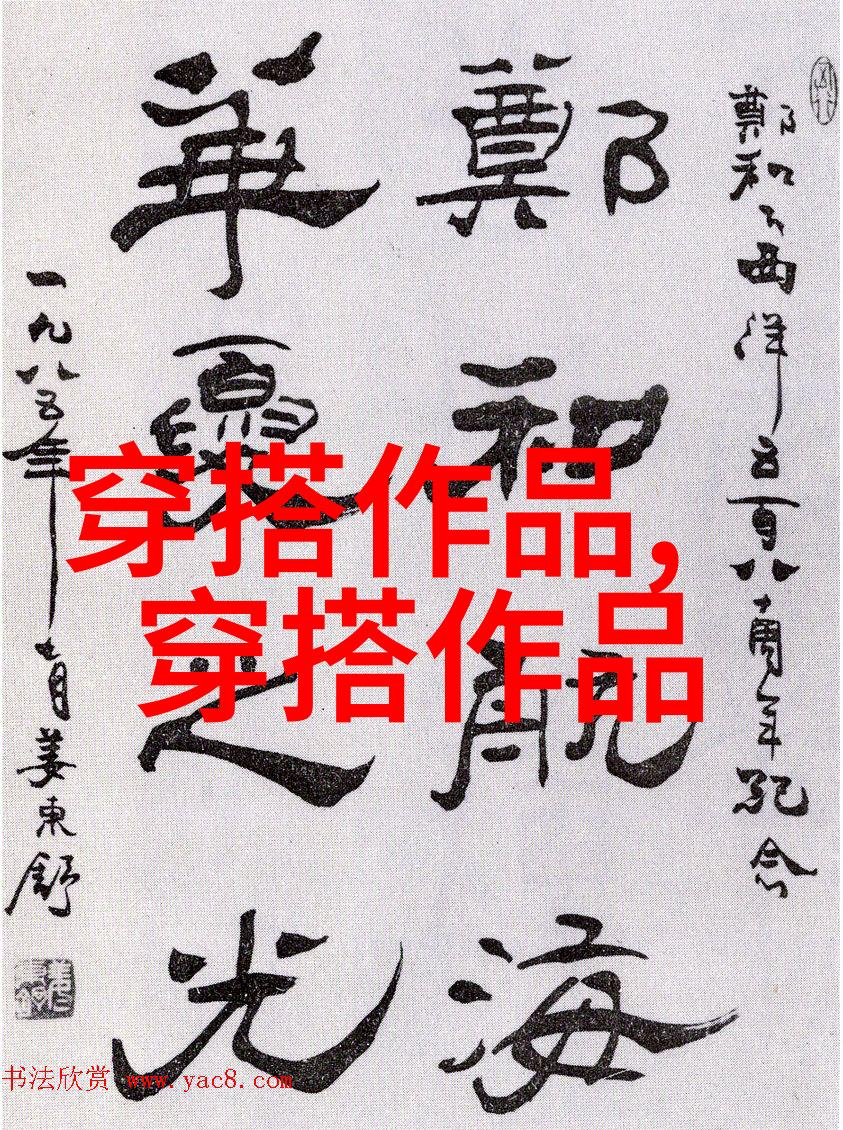 鄭和下西洋五百八十周年紀念
鄭和航海
華夏之光
一九八五年七月姜東舒
穿搭作品,
穿搭作品
书法欣赏 www.yac8.com